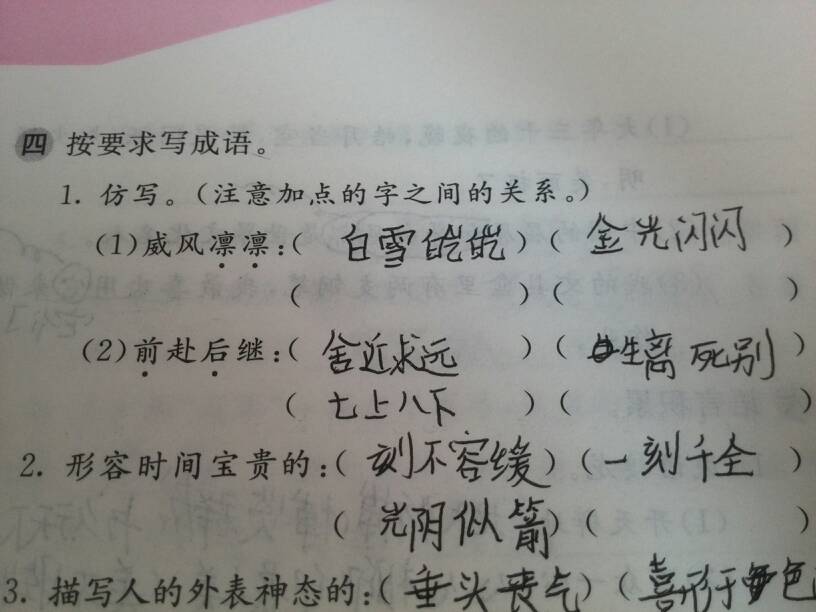 四 按要求写成语。
1. 仿写。(注意加点的字之间的关系。)
(1)威风凛凛:( 白雪皑皑 )( 金光闪闪 )
( )( )
(2)前赴后继:( 舍近求远 )( 生离死别 )
( 七上八下 )( )
2. 形容时间宝贵的:( 刻不容缓 )( 一刻千金 )
( 光阴似箭 )( )
3. 描写人的外表神态的:( 垂头丧气 )( 喜形于色